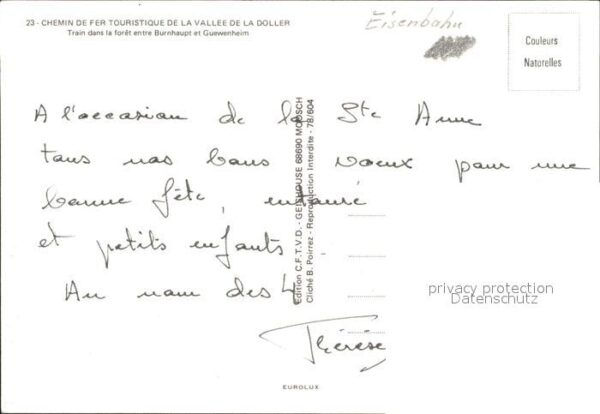 23 - CHEMIN DE FER TOURISTIQUE DE LA VALLEE DE LA DOLLER
Train dans la forêt entre Burnhaupt et Guewenheim
Eisenbahn
Couleurs
Naturelles
A l'occasion de la Ste Anne
tous nos bons voeux pour une
bonne fête, entouré
et petits enfants
Au nom des 4
Thérèse
Edition C.F.T.V.D. - GENHOUSE 68690 MOOSCH
Cliché B. Poirrez - Reproduction Interdite - 78/604
privacy protection
Datenschutz
EUROLUX